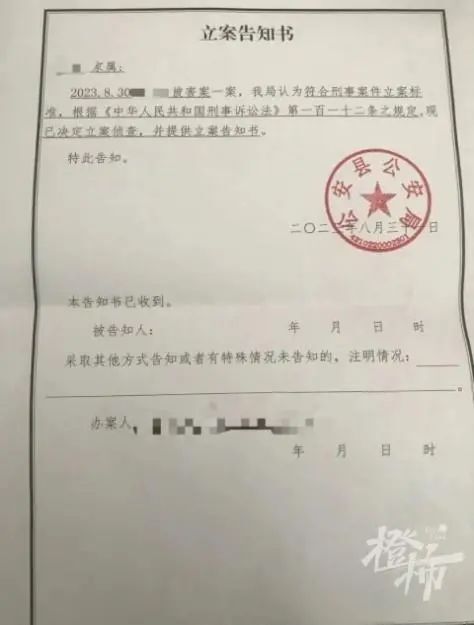 立案告知书
家属：
2023.8.30 被害案一案，我局认为符合刑事案件立案标
准，根据《中华人民共和国刑事诉讼法》第一百一十二条之规定，现
已决定立案侦查，并提供立案告知书。
特此告知。
公安县公安局
二〇二三年八月三 日
本告知书已收到。
被告知人： 年 月 日 时
采取其他方式告知或者有特殊情况未告知的，注明情况：
。
办案人
年 月 日 时
橙柿